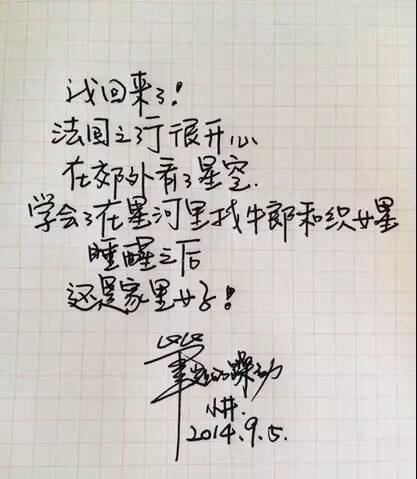 我回来了!
法国之行很开心
在郊外看了星空.
学会了在星河里找牛郎和织女星
睡醒之后
还是家里好!
笔尖的躁动
小井.
2014.9.5.